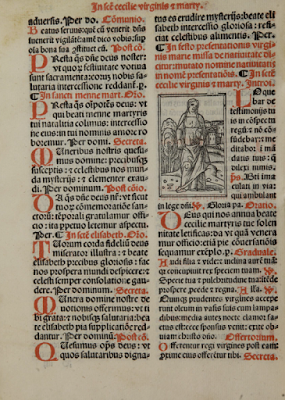 In scte cecilie virginis z marty.
aduersis. Per dn̄o. Cōmunio.
Beatus seruus quē cū venerit dn̄s
inuenerit vigilātē amē dico vobis; sup
oīa bona sua ꝯstituet eū. Post cō.
Presta q̄s dn̄e deus noster:
vt quoꝝ festiuitate votiua
sunt sacramenta: eoꝝ nobis sa
lutaria intercessione reddant. P.
In sancti menne mart. Orō.
Presta q̄s oīpotēs deus: vt
qui beati menne martyris
tui natalitia colimus: intercessiōe
eius: in tui nominis amore ro
boremur. Per dn̄m. Secreta.
Muneribus nostris quesu
mus domine: precibusqꝫ
susceptis: z celestibus nos mun
da mysterijs: z clementer exau
di. Per dominum. Post cōio.
Da q̄s dn̄e deus nr̄: vt sicut
tuoꝝ cōmemoratiōe san
ctoꝝ: tēporali gratulamur offi
tio: ita ppetuo letemur aspectu.
Per. In sctē elisabeth. Orō.
Tuorum corda fidelīū deus
miserator illustra: z beate
elisabeth precibus gloriosis: fac
nos prospera mundi despicere: z
celesti semper consolatione gau
dere. Per dominum. Secreta.
Munera domine nostre de
uotionis offerimus: vt ti
bi grata: z nobis sq̄ salutaria: bea
te elisabeth pia supplicatiōe reddā
tur. Per dominū. Post cō.
Quesumus oīps deus: vt
quos salutaribus digna-
tus es erudire mysterijs: beate eli
sabeth intercessio gloriosa: reficiat
celestibus alimentis. Per.
In festo presentationis virginis
marie missa de natiuitate di
citur: mutato nomine natiuitatis
in nomē presentatiōis. In scte
cecilie virginis z marty. Introi.
Loque
bar de
testimonijs tu
is in cōspectu
regū: z nō cō
fūdebar: z me
ditabor in mā
datis tuis: q̄
dilexi nimis.
ps. Bti ima
culati in via:
qui ambulant
in lege dn̄i. Gloria pa. Oratio.
Deus qui nos annua beate
cecilie martyris tue solen
nitate letificas: da vt quā venera
mur officio: etiā pie cōuersatiōis
sequamur exēplo. p. Graduale.
Audi filia z vide: z inclina aurē tuā:
qꝛ concupiuit rex speciem tuam.
Specie tua z pulchritudine tua: intē
de prospere procede z regna. Alla.
Quinqꝫ prudentes virgines accepe
runt oleum in vasis suis cum lampa
dibus: media autez nocte clamor fa
ctus est: ecce sponsus venit: exite ob
uiam christo dn̄o. Offertorium.
Offerentur regi virgines post eam:
proxime eius offerētur tibi. Secreta.